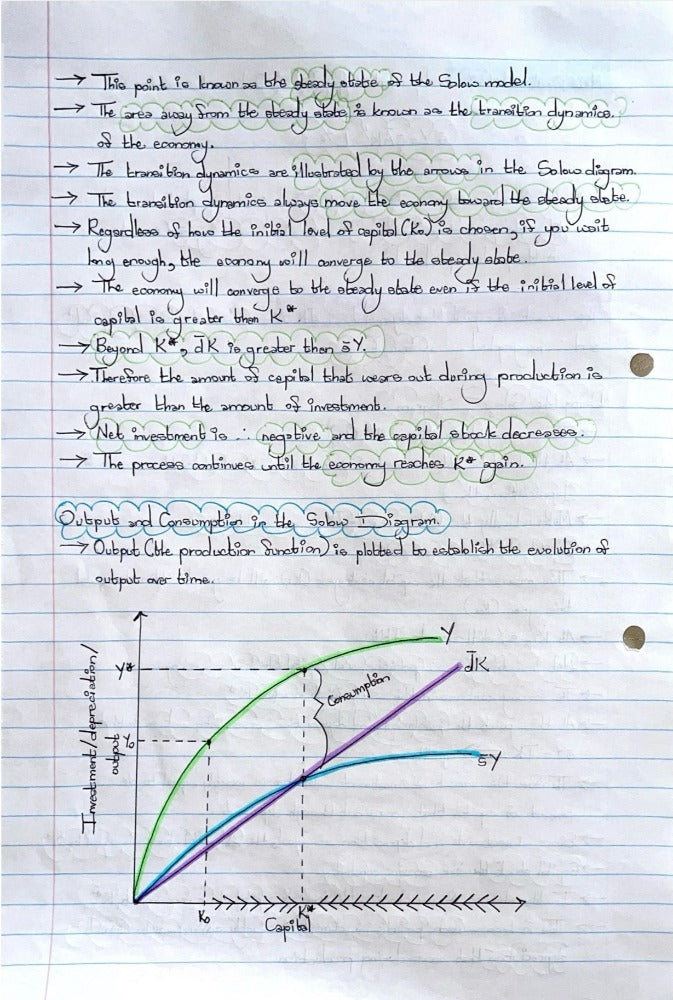 → This point is known as the steady state of the Solow model.
→ The area away from the steady state is known as the transition dynamics.
of the economy.
→ The transition dynamics are illustrated by the arrows in the Solow diagram.
→ The transition dynamics always move the economy toward the steady state.
→ Regardless of how the initial level of capital (K₀) is chosen, if you wait
long enough, the economy will converge to the steady state.
→ The economy will converge to the steady state even if the initial level of
capital is greater than K*.
→ Beyond K*, d̄K is greater than s̄Y.
→ Therefore the amount of capital that wears out during production is
greater than the amount of investment.
→ Net investment is ∴ negative and the capital stock decreases.
→ The process continues until the economy reaches K* again.
Output and Consumption in the Solow Diagram.
→ Output (the production function) is plotted to establish the evolution of
output over time.
Investment/depreciation/
output
Y
Y*
d̄K
Consumption
Y₀
s̄Y
K₀
K*
Capital